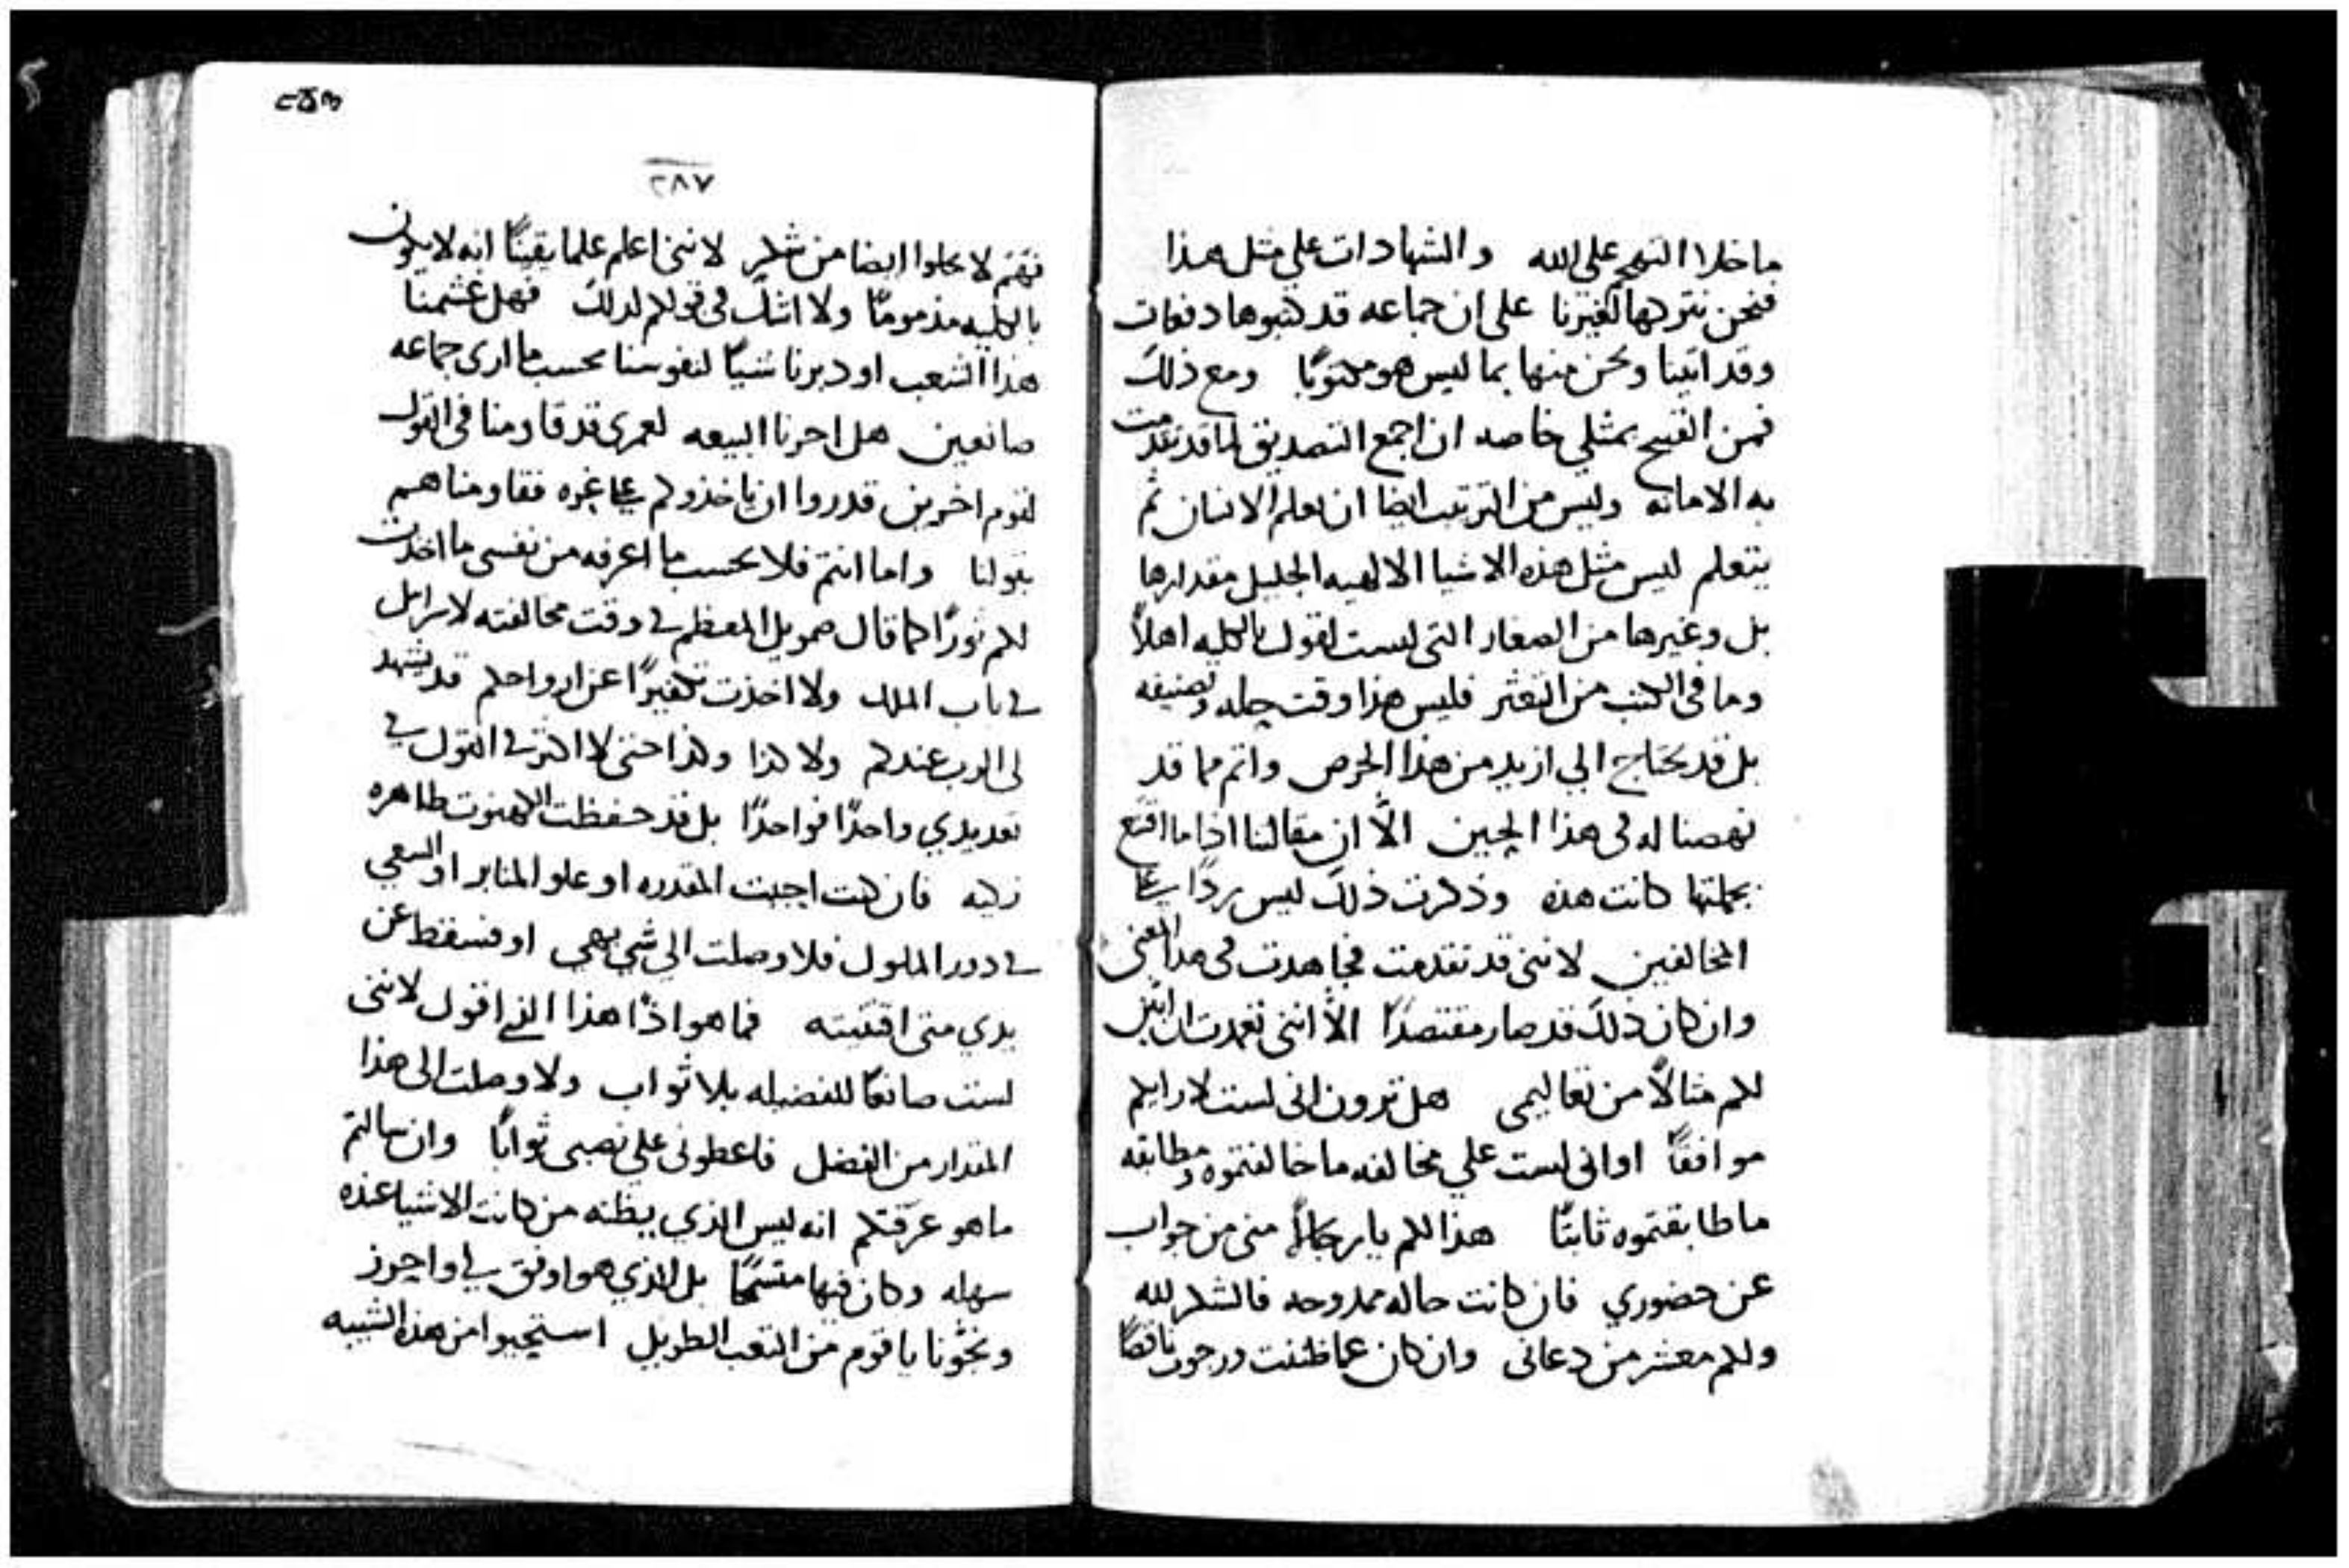 ما خلا التهجم على الله والشهادات علي مثل هذا
فنحن نتركها لغيرنا على ان جماعه قد كتبوها دفعات
وقد اتينا ونحن منها بما ليس هو مكتوبًا ومع ذلك
فمن القبيح بمثلي خاصه ان اجمع التصديق لما قد تقدمت
به الامانه وليس من الترتيب ايضا ان يعلم الانسان ثم
يتعلم ليس مثل هذه الاشيا الالهيه الجليل مقدارها
بل وغيرها من الصغار التي ليست لقول بالكليه اهلاً
وما في الكتب من التعثر فليس هذا وقت حله وتصنيفه
بل قد يحتاج الي ازيد من هذا الحرص واتم مما قد
نهضنا له في هذا الحين الاّ ان مقالتنا اذا ما اقنع
بجملتها كانت هذه وذكرت ذلك ليس ردًا على
المخالفين لانني قد تقدمت فجاهدت في هذا المعنى
وان كان ذلك قد صار مقتصدًا الاّ انني تعمدت ان ابين
لكم مثالاً من تعاليمي هل ترون اني لست لارايكم
موافقًا او اني لست علي مخالفه ما خالفتموه ومطابقه
ما طابقتموه ثابتًا هذا لكم يا رجالاً مني من جواب
عن حضوري فان كانت حاله ممدوحه فالشكر لله
ولكم معشر من دعاني وان كان عما ظننت ورجوت ناقصًا
٢٨٧
فهم لا يخلوا ايضا من شكر لانني اعلم علما يقينًا انه لا يكون
بالكليه مذمومًا ولا اشك في قولكم لذلك فهل غشمنا
هذا الشعب او دبرنا شيًا لنفوسنا بحسب ما ارى جماعه
صانعين هل احزنا البيعه لعمري قد قاومنا في القول
لقوم اخرين قدروا ان ياخذوكم على غره فقاومناهم
بقولنا واما انتم فلا بحسب ما اعرفه من نفسي ما اخذت
لكم ثورًا كما قال صمويل المعظم في وقت مخالفته لاسرايل
في باب الملك ولا اخذت تكفيرًا عن ارواحكم قد يشهد
لي الرب عندكم ولا كذا وكذا حتى لا اكثر في القول في
تعديدي واحدًا فواحدًا بل قد حفظت الكهنوت طاهره
زكيه فان كنت احببت المقدره او علو المنابر او السعي
في دور الملوك فلا وصلت الي شي بهي او فسقط عن
يدي متى اقتنيته فما هو اذًا هذا الذي اقول لانني
لست صانعًا للفضيله بلا ثواب ولا وصلت الى هذا
المقدار من الفضل فاعطوني علي نصبي ثوابًا وان سالتم
ما هو عرّفتكم انه ليس الذي يظنه من كانت الاشيا عنده
سهله وكان فيها متسمّحًا بل الذي هو اوفق لي واحوز
ونحّونا يا قوم من التعب الطويل استحيوا من هذه الشيبه